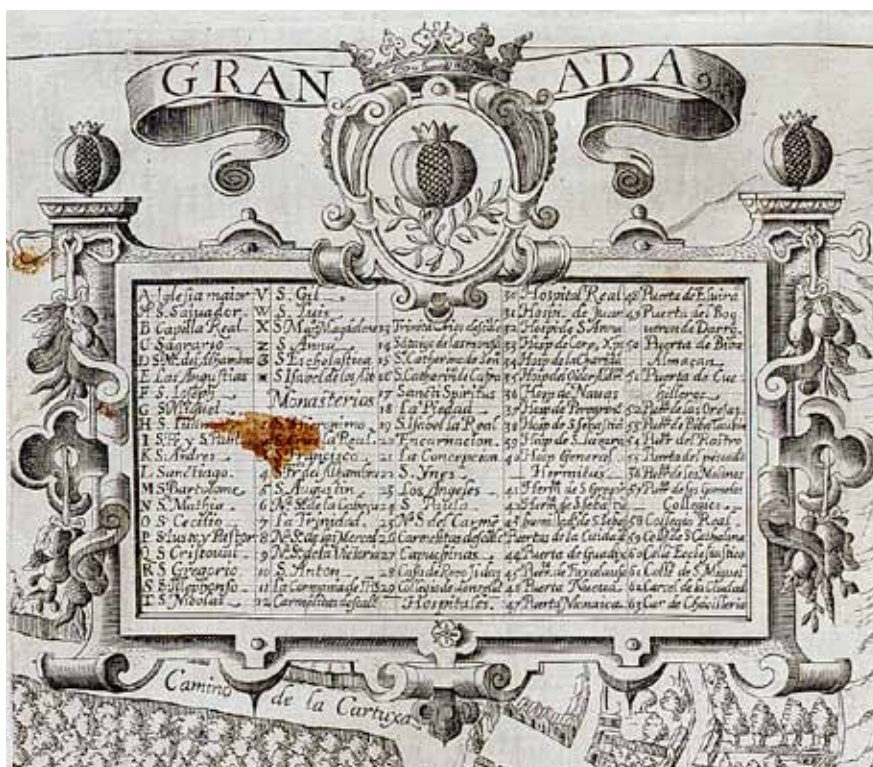 GRANADA
A Iglesia maior
S. Saluador.
B Capilla Real.
C Sagrario
D Sta. Ma. del Alhambra
E Las Angustias
F S. Ioseph
G S. Miguel
H S.
I S. Pe. y S.
K S. Andres
L Sanctiago.
M S. Bartolome
N S. Mathia
O S. Cecilio
P S. Iusto y Pastor
Q S. Cristoual
R S. Gregorio
S S. Ilephonso
T S. Nicolas
V S. Gil
W S. Luis
X S. Ma. Magdalena
Z S. Anna
S. Escholastica
S. Isabel de los
Monasterios
S. Hieronimo
la Real.
Francisco
4 S. Fr. del Alhambra
5 S. Augustin
6 Na. Sa. de la Cabeça
7 la Trinidad.
8 Na. Sa. de la Merced
9 Na. Sa. de la Victoria
10 S. Anton
11 La Cartuxa
12 Carmelitas descalços
13
14
15 S. Catherina de Sena
16 S. Catherina de
17 Sancti Spiritus
18 La Piedad
19 S. Isabel la Real
20 Encarnacion.
21 La Concepcion
22 S. Ynes
23 Los Angeles
24 S. Paula
25 Na. S. del Carmen
26 Carmelitas descalças
27 Capuchinas
28
29 Colegio de
Hospitales.
30 Hospital Real
31 Hospi. de Juan
32 Hospi. de S. Anna
33 Hosp. de Corp. Xpi
34 Hosp. de la Charidad
35 Hosp. de
36 Hosp. de Nauas
37 Hosp. de Peregrinos
38 Hosp. de S. Sebastian
39 Hosp. de S. Lazaro
40 Hosp. General
Hermitas
41 Herm. de S. Gregorio
42 Herm. de S. Sebastian
43
Puertas de la Ciudad
44 Puerta de Guadix
45 Puer. de Faxalausa
46 Puerta Nueua
47 Puerta Monaica
48 Puerta de Eluira
49 Puerta del Boq
ueron de Darro.
50 Puerta de Biba
Almaçan
51 Puerta de Cu
chilleros
52 Puer. de las Orejas
53 Puer. de Bibataubin
54 Puer. del Rastro
55 Puerta del pescado
56 Puer. de los Molinos
57 Puer. de los Gomeles
Collegios
58 Collegio Real.
59 Colle. de S. Cathalina
60 Colle. Eclesiastico
61 Colle. de S. Miguel
62 Carcel de la Ciudad
63 Car. de Chacilleria
Camino de la Cartuxa